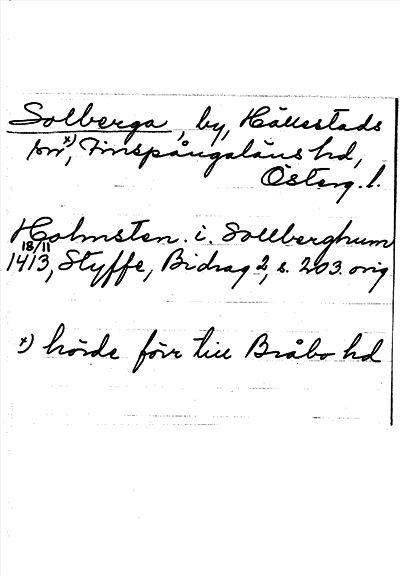 Solberga, by, Hällestads
sn x), Finspångaläns hd,
Österg. l.
Holmsten. i. Sollberghum
18/11
1413, Styffe, Bidrag 2, s. 203. orig
x) hörde förr till Bråbo hd